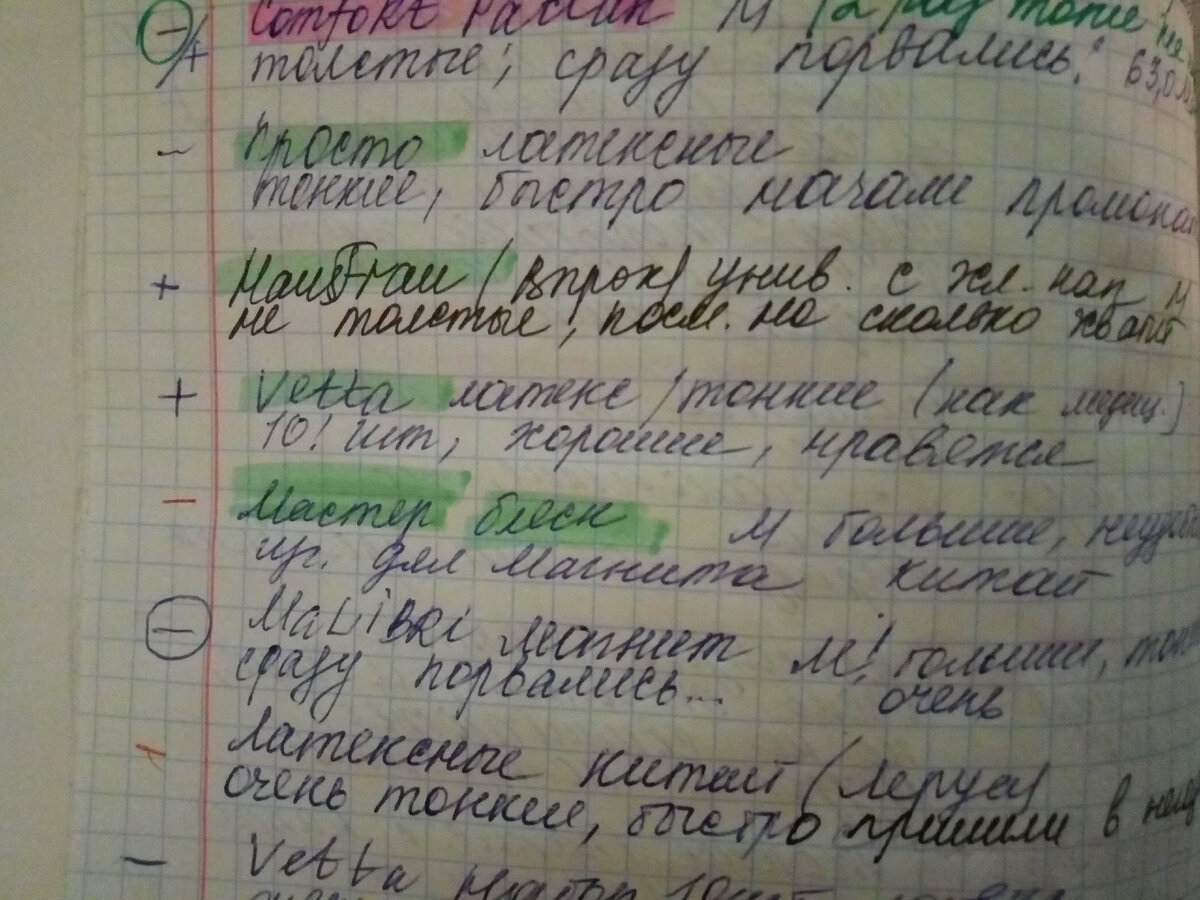 ⊖/+ Comfort Paclan M /2 раз тоже не
толстые; сразу порвались! 63,0
- Просто латексные
тонкие, быстро начали промокат
+ HausFrau (впрок) унив. с хл. нап. М
не толстые; посм. на сколько хватит
+ Vetta латекс / тонкие (как медиц.)
10! шт, хорошие, нравятся
- Мастер блеск М большие, неудоб
изг. для Магнита Китай
⊖ MaLiBRi Магнит М! большие, тон
сразу порвались... очень
- Латексные Китай (Леруа)
очень тонкие, быстро пришли в
- Vetta 10шт